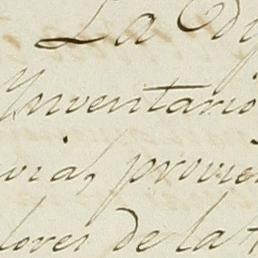 La Dip
Ynventario
via, provin
lores de la